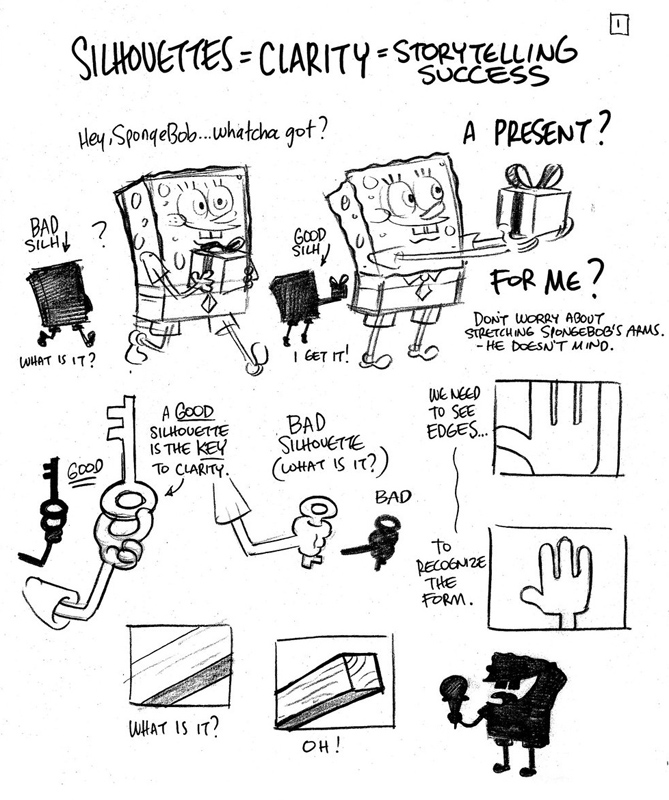 1
SILHOUETTES = CLARITY = STORYTELLING
SUCCESS
Hey, SpongeBob...whatcha got?
A PRESENT?
BAD
SILH
?
GOOD
SILH
WHAT IS IT?
I GET IT!
FOR ME?
DON'T WORRY ABOUT
STRETCHING SPONGEBOB'S ARMS.
- HE DOESN'T MIND.
GOOD
A GOOD
SILHOUETTE
IS THE KEY
TO CLARITY.
BAD
SILHOUETTE
(WHAT IS IT?)
BAD
WE NEED
TO SEE
EDGES...
TO
RECOGNIZE
THE
FORM.
WHAT IS IT?
OH!